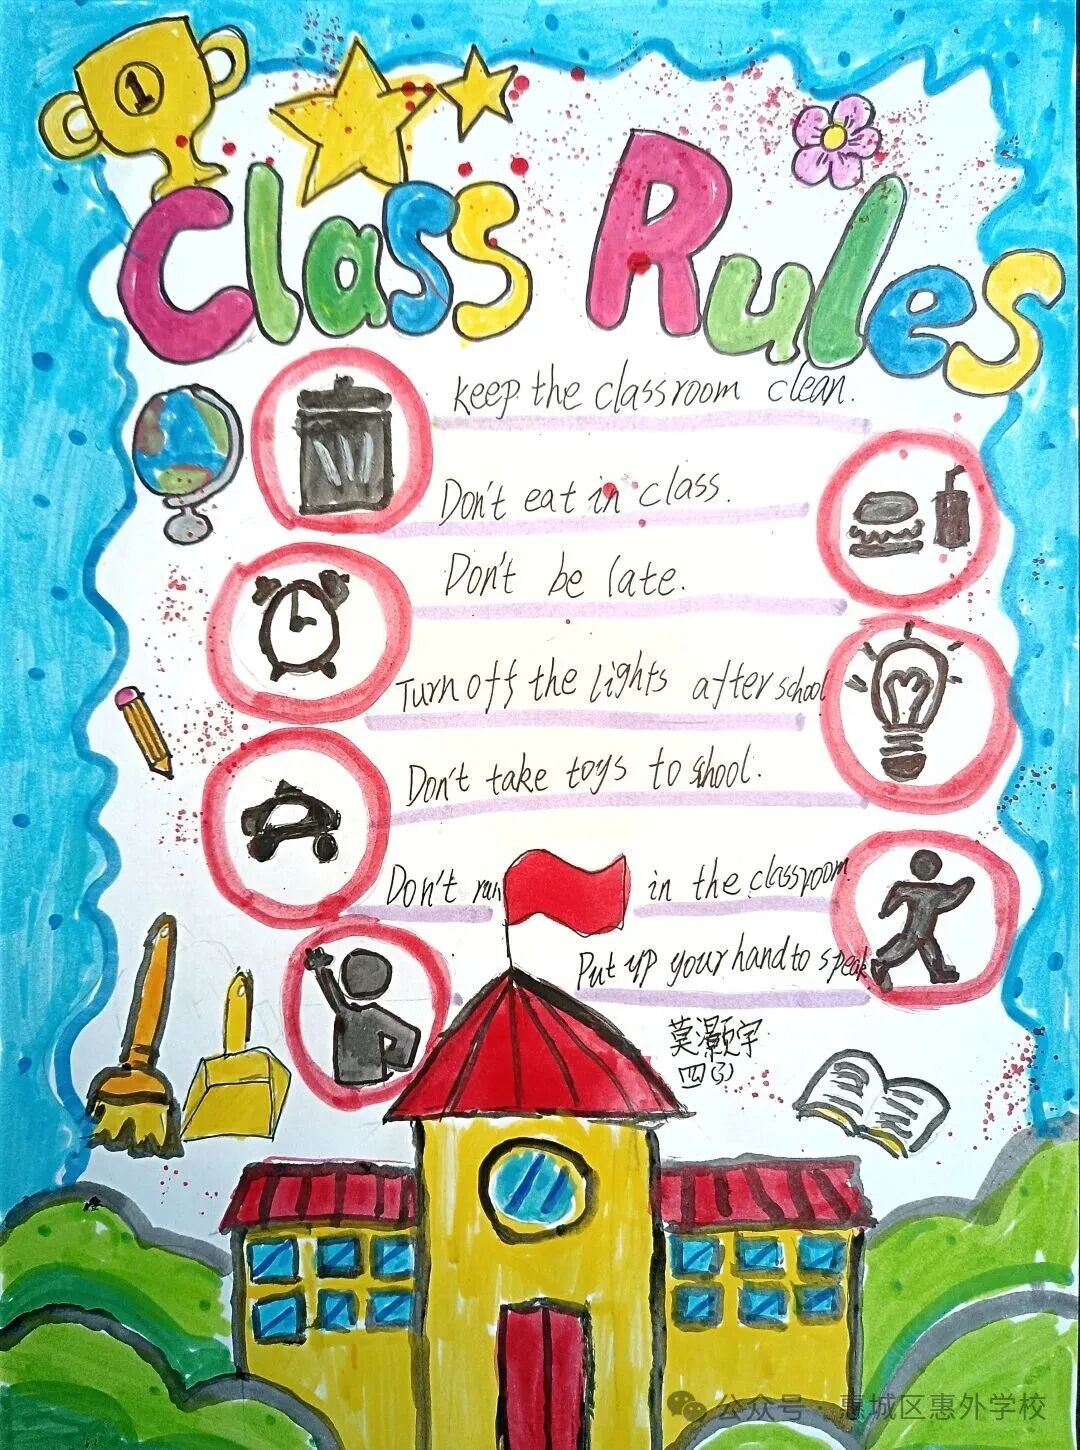 1
Class Rules
keep the classroom clean.
Don't eat in class.
Don't be late.
Turn off the lights after school
Don't take toys to school.
Don't run in the classroom.
Put up your hand to speak
莫灏宇
四(3)
公众号·惠城区惠外学校